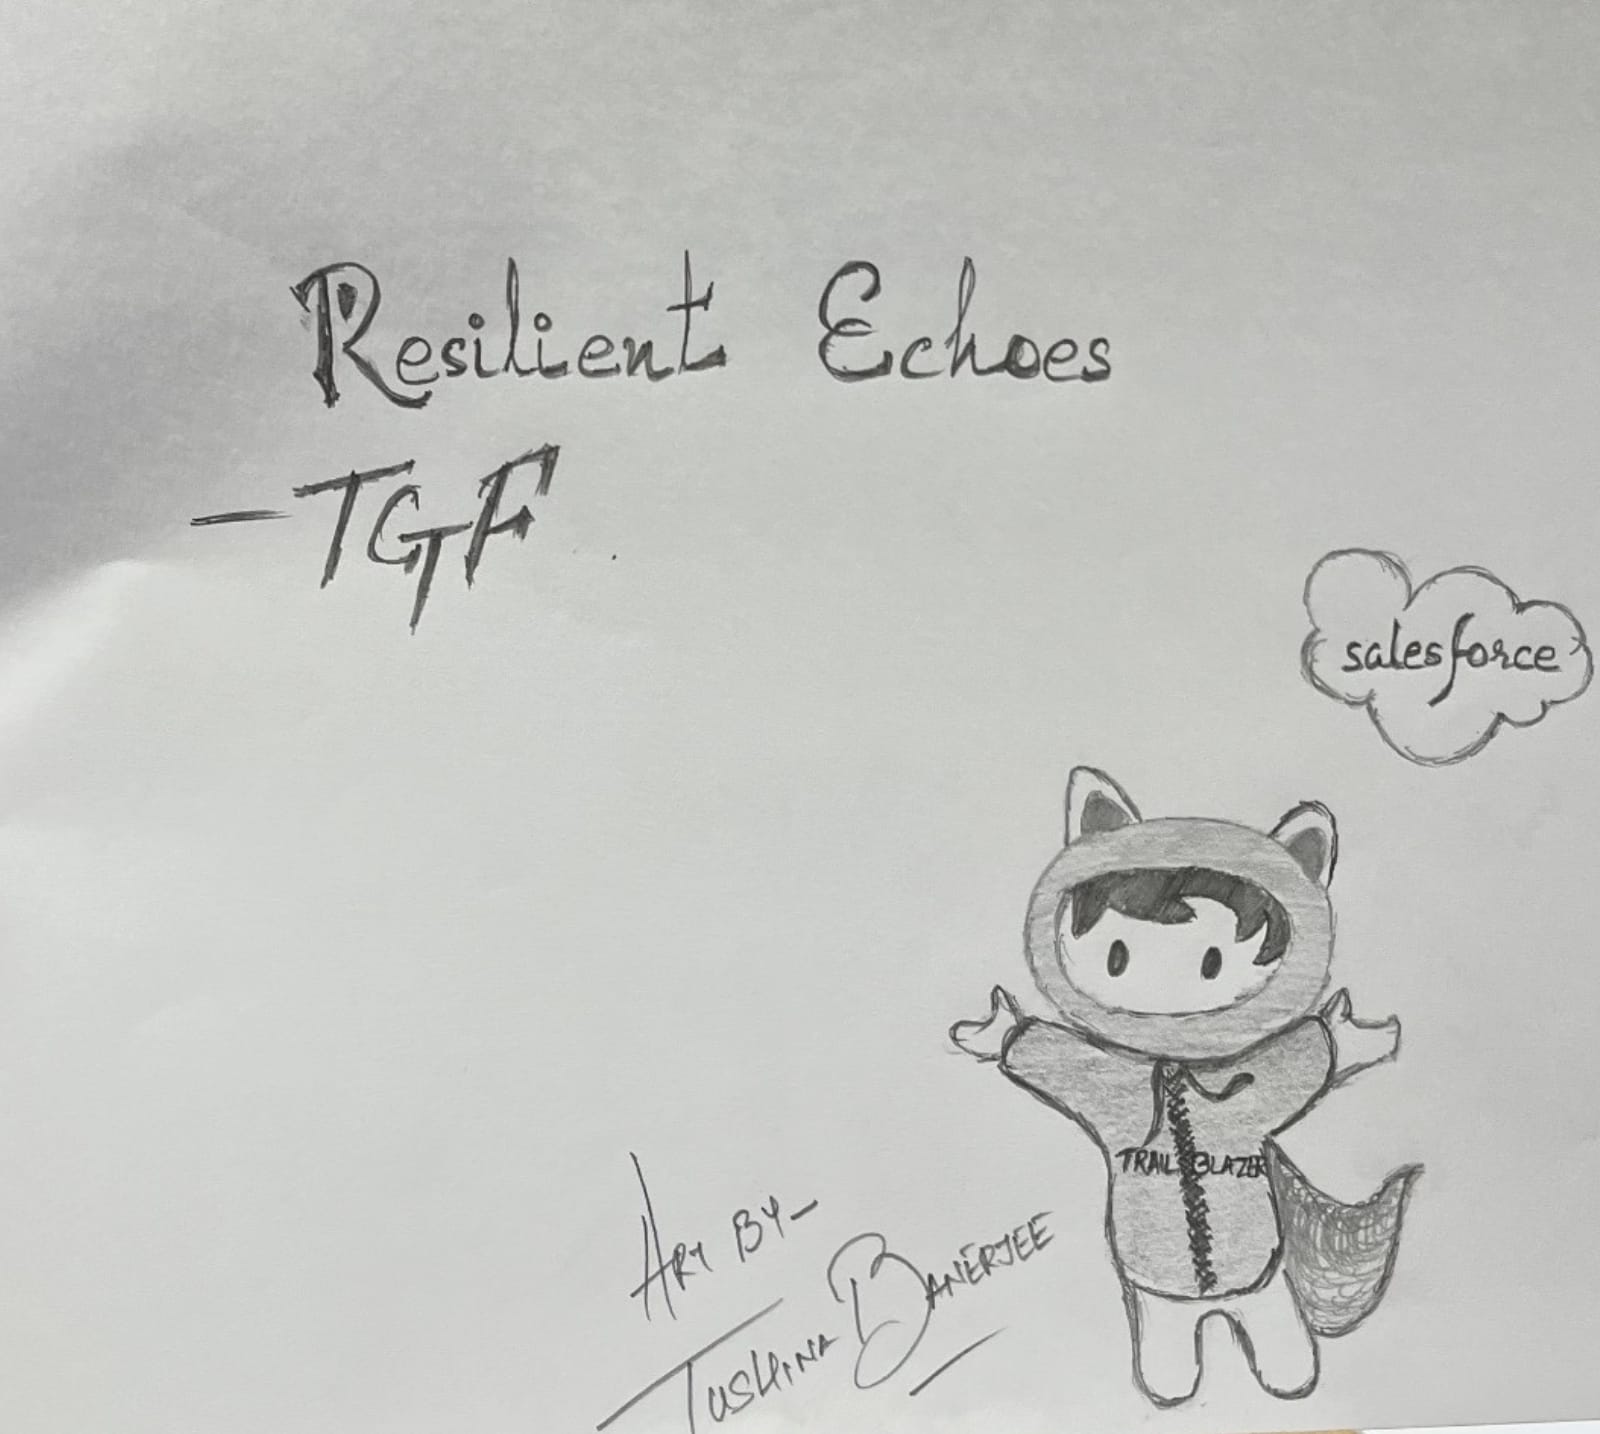 Resilient Echoes
-TGF
salesforce
TRAILBLAZER
ART BY-
TUSHINA BANERJEE